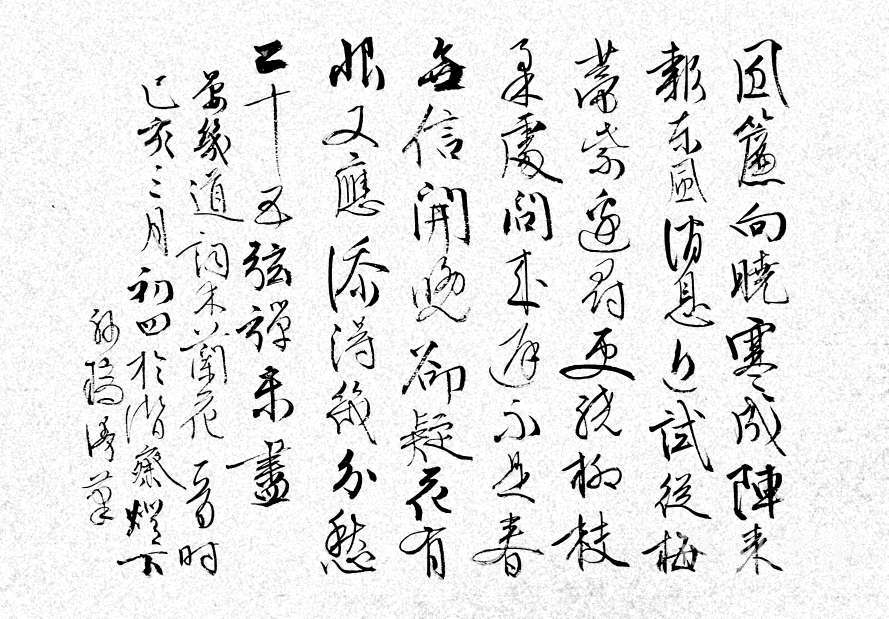 風簾向曉寒成陣來
報東風消息近試從梅
蒂紫邊尋更繞柳枝
柔處問來遲不是春
無信開晚卻疑花有
恨又應添得幾分愁
二十五弦彈未盡
晏幾道詞木蘭花一首时
己亥三月初四於潛齋燈下
筆